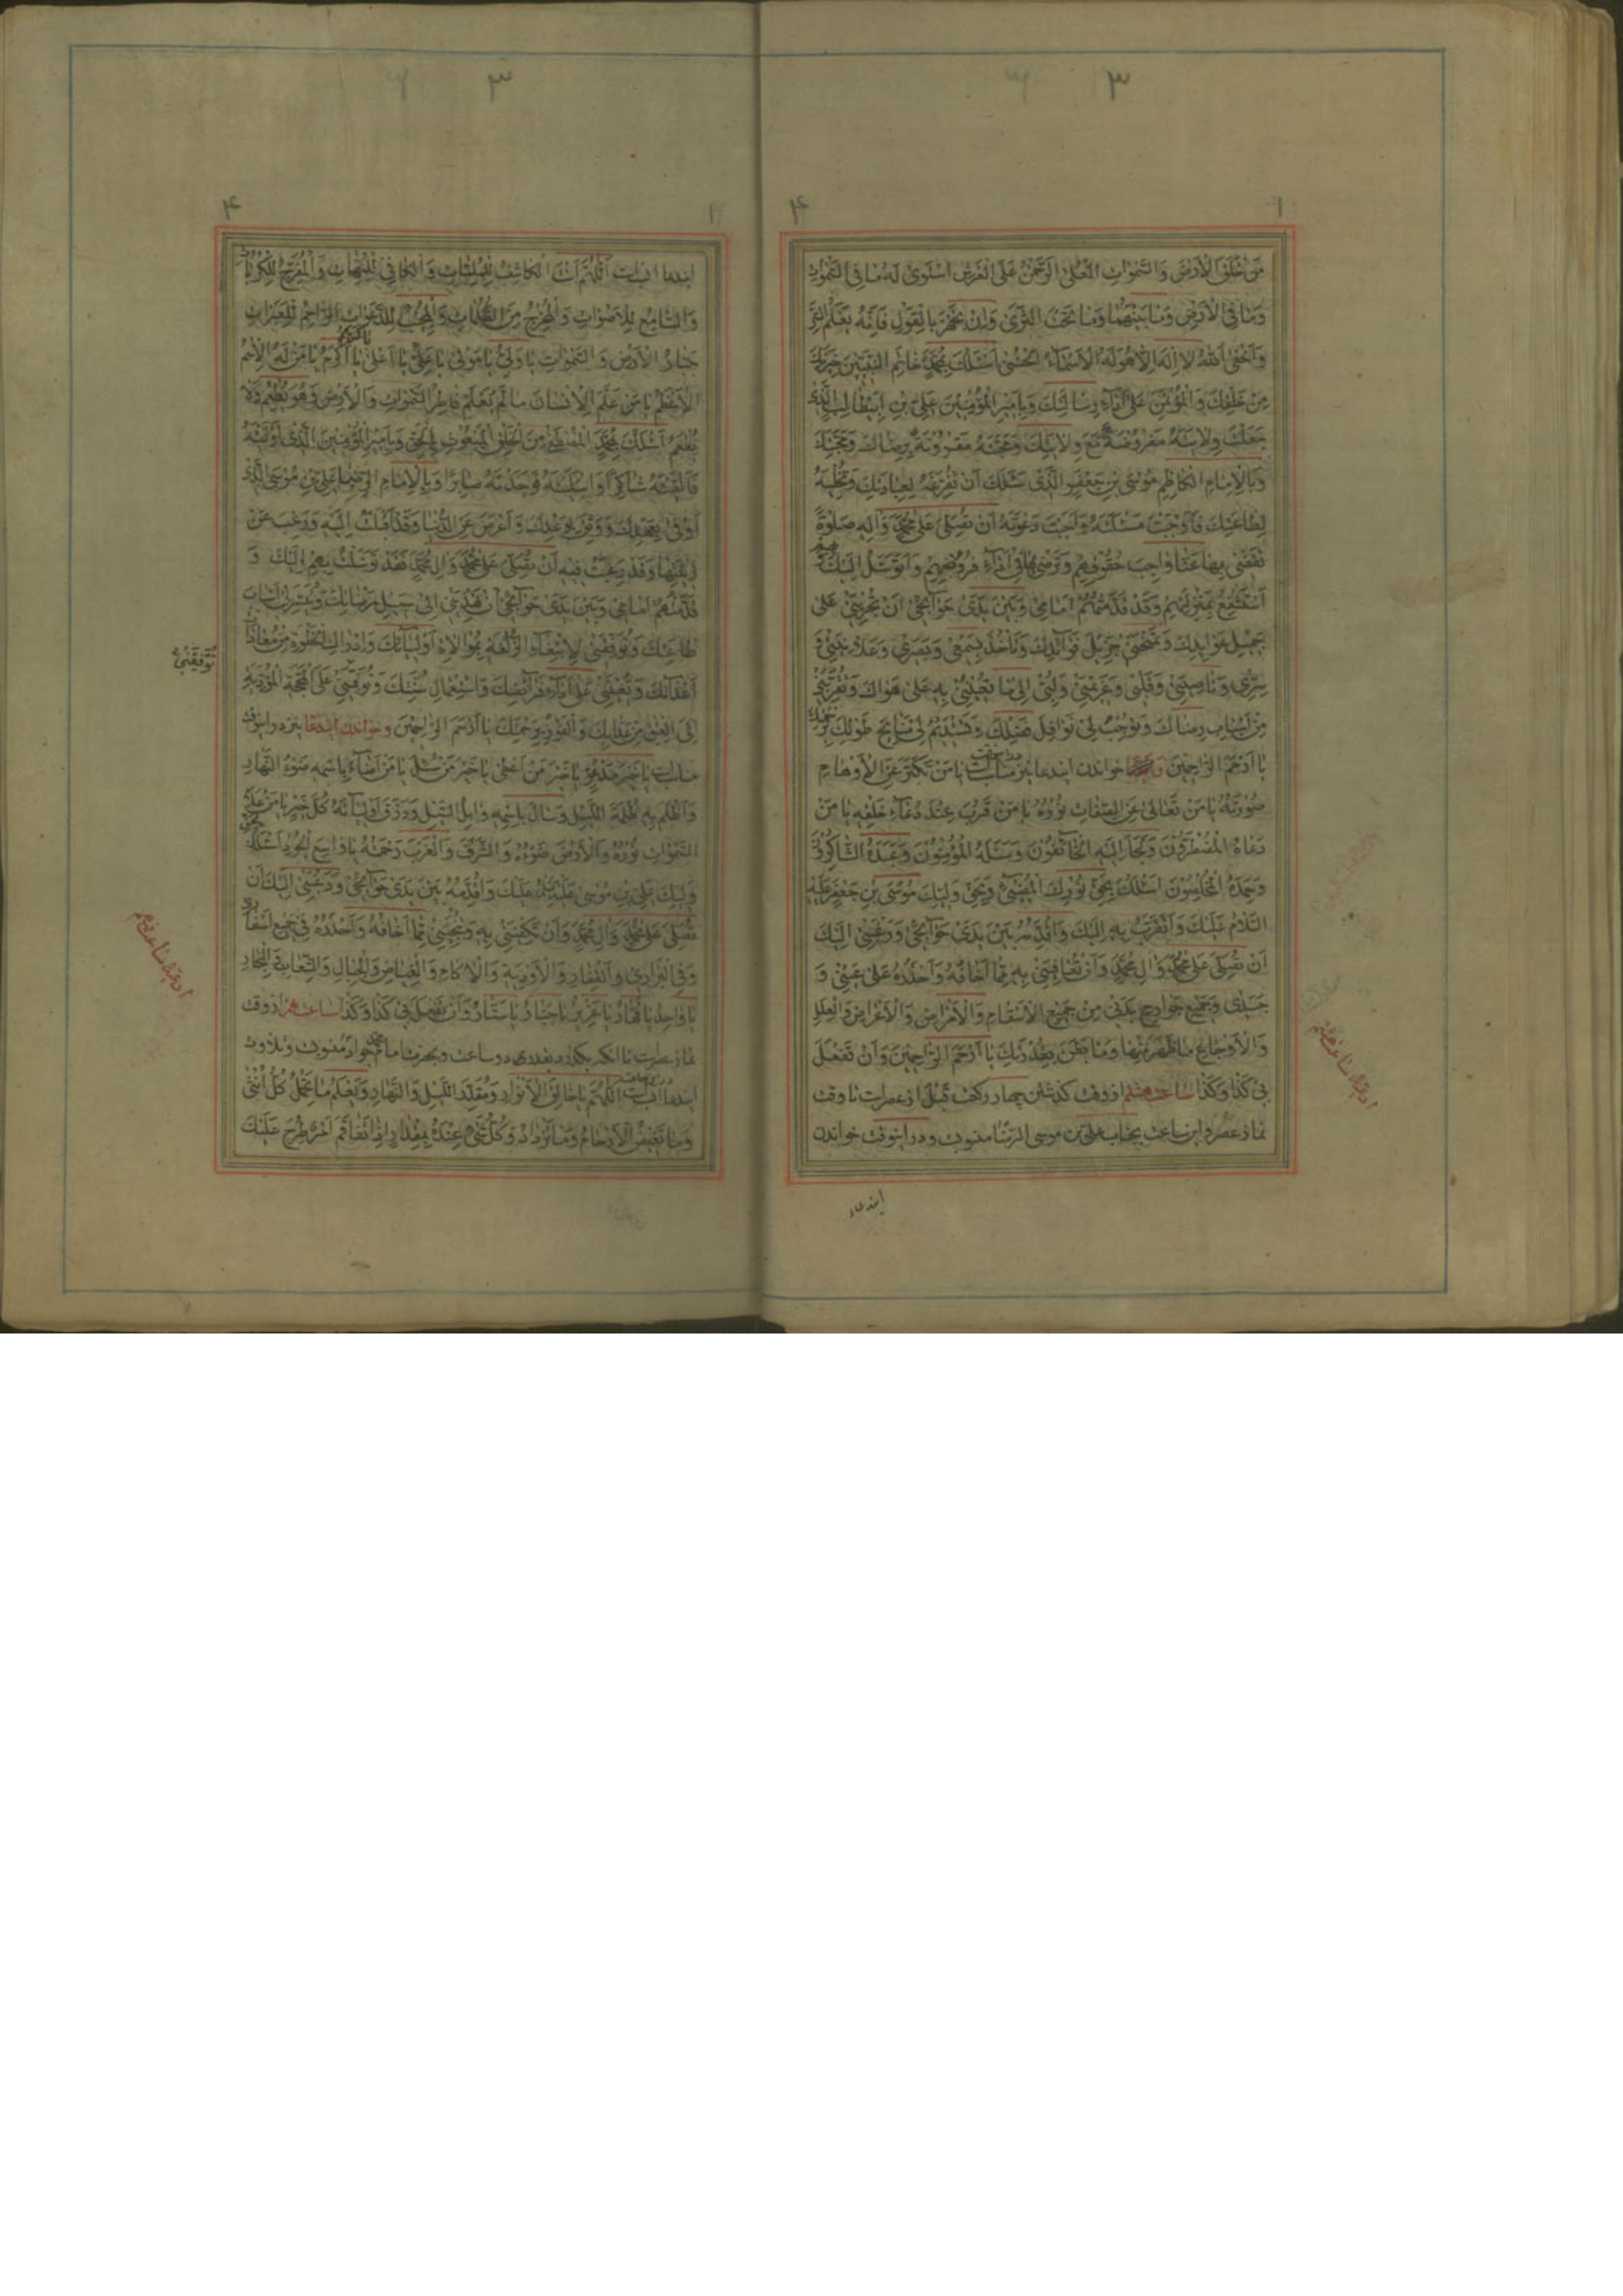 ۳
۱ ۴
مَنْ خَلَقَ الْاَرْضَ وَالسَّمٰوٰاتِ الْعُلٰى الرَّحْمٰنُ عَلَى الْعَرْشِ اسْتَوٰى لَهُ مٰا فِى السَّمٰوٰاتِ
وَمٰا فِى الْاَرْضِ وَمٰا بَيْنَهُمٰا وَمٰا تَحْتَ الثَّرٰى وَاِنْ تَجْهَرْ بِالْقَوْلِ فَاِنَّهُ يَعْلَمُ السِّرَّ
وَاَخْفٰى اَللّٰهُ لاٰ اِلٰهَ اِلاّٰ هُوَ لَهُ الْاَسْمٰاءُ الْحُسْنٰى اَسْئَلُكَ بِمُحَمَّدٍ خٰاتَمِ النَّبِيّينَ خِيَرَتِكَ
مِنْ خَلْقِكَ وَالْمُؤْتَمَنِ عَلٰى اَدٰاءِ رِسٰالَتِكَ وَبِاَميرِ الْمُؤْمِنينَ عَلِىِّ بْنِ اَبيطٰالِبٍ الَّذى
جَعَلْتَ وِلاٰيَتَهُ مَفْرُوضَةً مَعَ وِلاٰيَتِكَ وَمَحَبَّتَهُ مَقْرُونَةً بِرِضٰاكَ وَمَحَبَّتِكَ
وَبِالْاِمٰامِ الْكٰاظِمِ مُوسَى بْنِ جَعْفَرٍ الَّذى سَئَلَكَ اَنْ تُفَرِّغَهُ لِعِبٰادَتِكَ وَتُخَلِّيَهُ
لِطٰاعَتِكَ فَاَوْجَبْتَ مَسْئَلَتَهُ وَاَجَبْتَ دَعْوَتَهُ اَنْ تُصَلِّىَ عَلٰى مُحَمَّدٍ وَآلِهِ صَلٰوةً
تَقْضى بِهٰا عَنّٰا وٰاجِبَ حُقُوقِهِمْ وَتَرْضٰى بِهٰا فى اَدٰاءِ فُرُوضِهِمْ وَاَتَوَسَّلُ اِلَيْكَ بِهِمْ
اَسْتَشْفِعُ بِمَنْزِلَتِهِمْ وَقَدْ قَدَّمْتُهُمْ اَمٰامى وَبَيْنَ يَدَىْ حَوٰائِجى اَنْ تُجْرِيَنى عَلٰى
جَميلِ عَوٰائِدِكَ وَتَمْنَحَنى جَزيلَ فَوٰائِدِكَ وَتَأْخُذَ بِسَمْعى وَبَصَرى وَعَلاٰنِيَتى وَ
سِرّى وَنٰاصِيَتى وَقَلْبى وَعَزيمَتى وَلُبّى اِلٰى مٰا تُعينُنى بِهِ عَلٰى هَوٰاكَ وَتُقَرِّبُنى
مِنْ اَسْبٰابِ رِضٰاكَ وَتُوجِبُ لى نَوٰافِلَ فَضْلِكَ وَتَسْتَديمُ لى مَنٰائِحَ طَوْلِكَ بِرَحْمَتِكَ
يٰا اَرْحَمَ الرّٰاحِمينَ خواندن ایندعا نیز مناسبت يٰا مَنْ تَكَبَّرَ عَنِ الْاَوْهٰامِ
صُورَتُهُ يٰا مَنْ تَعٰالٰى عَنِ الصِّفٰاتِ نُورُهُ يٰا مَنْ قَرُبَ عِنْدَ دُعٰاءِ خَلْقِهِ يٰا مَنْ
دَعٰاهُ الْمُضْطَرُّونَ وَلَجَأَ اِلَيْهِ الْخٰائِفُونَ وَسَئَلَهُ الْمُؤْمِنُونَ وَعَبَدَهُ الشّٰاكِرُونَ
وَحَمِدَهُ الْمُخْلِصُونَ اَسْئَلُكَ بِحَقِّ نُورِكَ الْمُضيئِ وَبِحَقِّ وَلِيِّكَ مُوسَى بْنِ جَعْفَرٍ عَلَيْهِ
السَّلاٰمُ عَلَيْكَ وَاَتَقَرَّبُ بِهِ اِلَيْكَ وَاُقَدِّمُهُ بَيْنَ يَدَىْ حَوٰائِجى وَرَغْبَتى اِلَيْكَ
اَنْ تُصَلِّىَ عَلٰى مُحَمَّدٍ وَآلِ مُحَمَّدٍ وَاَنْ تُعٰافِيَنى بِهِ مِمّٰا اَخٰافُهُ وَاَحْذَرُهُ عَلٰى عَيْنى وَ
جَسَدى وَجَميعِ جَوٰارِحِ بَدَنى مِنْ جَميعِ الْاَسْقٰامِ وَالْاَمْرٰاضِ وَالْاَعْرٰاضِ وَالْعِلَلِ
وَالْاَوْجٰاعِ مٰا ظَهَرَ مِنْهٰا وَمٰا بَطَنَ بِقُدْرَتِكَ يٰا اَرْحَمَ الرّٰاحِمينَ وَاَنْ تَفْعَلَ
بى كَذٰا وَكَذٰا ساعت هشتم از وقت گذشتن چهار رکعت قبل از عصرست تا وقت
نماز عصر و این ساعت بجناب علی بن موسی الرضا منسوبت و در اینوقت خواندن
ایندعاء
ادعیهٔ ساعت هشتم
۳
۱ ۴
ایندعا اَللّٰهُمَّ اَنْتَ الْكٰاشِفُ لِلْمُلِمّٰاتِ وَالْكٰافى لِلْمُهِمّٰاتِ وَالْمُفَرِّجُ لِلْكُرُبٰاتِ
وَالسّٰامِعُ لِلْاَصْوٰاتِ وَالْمُخْرِجُ مِنَ الظُّلُمٰاتِ وَالْمُجيبُ لِلدَّعَوٰاتِ الرّٰاحِمُ لِلْعَبَرٰاتِ
جَبّٰارُ الْاَرْضِ وَالسَّمٰوٰاتِ يٰا وَلِىُّ يٰا مَوْلٰى يٰا عَلِىُّ يٰا اَعْلٰى يٰا كَريمُ يٰا اَكْرَمُ يٰا مَنْ لَهُ الْاِسْمُ
الْاَعْظَمُ يٰا مَنْ عَلَّمَ الْاِنْسٰانَ مٰا لَمْ يَعْلَمْ فٰاطِرَ السَّمٰوٰاتِ وَالْاَرْضِ وَهُوَ يُطْعِمُ وَلاٰ
يُطْعَمُ اَسْئَلُكَ بِمُحَمَّدٍ الْمُصْطَفٰى مِنَ الْخَلْقِ الْمَبْعُوثِ بِالْحَقِّ وَبِاَميرِ الْمُؤْمِنينَ الَّذى اَوْلَيْتَهُ
فَاَلْفَيْتَهُ شٰاكِرًا وَابْتَلَيْتَهُ فَوَجَدْتَهُ صٰابِرًا وَبِالْاِمٰامِ الرِّضٰا عَلِىِّ بْنِ مُوسَى الَّذى
اَوْفٰى بِعَهْدِكَ وَوَثِقَ بِوَعْدِكَ وَاَعْرَضَ عَنِ الدُّنْيٰا وَقَدْ اَقْبَلَتْ اِلَيْهِ وَرَغِبَ عَنْ
زينَتِهٰا وَقَدْ رَغِبَتْ فيهِ اَنْ تُصَلِّىَ عَلٰى مُحَمَّدٍ وَآلِ مُحَمَّدٍ فَقَدْ تَوَسَّلْتُ بِهِمْ اِلَيْكَ وَ
قَدَّمْتُهُمْ اَمٰامى وَبَيْنَ يَدَىْ حَوٰائِجى اَنْ تَهْدِيَنى اِلٰى سَبيلِ مَرْضٰاتِكَ وَتُيَسِّرَ لى اَسْبٰابَ
طٰاعَتِكَ وَتُوَفِّقَنى لِابْتِغٰاءِ الزُّلْفَةِ بِمُوٰالاٰةِ اَوْلِيٰائِكَ وَاِدْرٰاكِ الْحُظْوَةِ مِنْ مُعٰادٰاةِ
اَعْدٰائِكَ وَتُعينَنى عَلٰى اَدٰاءِ فَرٰائِضِكَ وَاسْتِعْمٰالِ سُنَّتِكَ وَتُوَفِّقَنى عَلَى الْمَحَجَّةِ الْمُؤَدِّيَةِ
اِلَى الْعِتْقِ مِنْ عَذٰابِكَ وَالْفَوْزِ بِرَحْمَتِكَ يٰا اَرْحَمَ الرّٰاحِمينَ وخواندن ایندعا نیز در اینوقت
مناسبت يٰا خَيْرَ مَدْعُوٍّ يٰا خَيْرَ مَنْ اَعْطٰى يٰا خَيْرَ مَنْ سُئِلَ يٰا مَنْ اَضٰاءَ بِاسْمِهِ ضَوْءُ النَّهٰارِ
وَاَظْلَمَ بِهِ ظُلْمَةُ اللَّيْلِ وَسٰالَ بِاسْمِهِ وٰابِلُ السَّيْلِ وَرَزَقَ اَوْلِيٰائَهُ كُلَّ خَيْرٍ يٰا مَنْ عَلاَ
السَّمٰوٰاتِ نُورُهُ وَالْاَرْضَ ضَوْءُهُ وَالشَّرْقَ وَالْغَرْبَ رَحْمَتُهُ يٰا وٰاسِعَ الْجُودِ اَسْئَلُكَ بِحَقِّ
وَلِيِّكَ عَلِىِّ بْنِ مُوسٰى عَلَيْهِ السَّلٰمُ عَلَيْكَ وَاُقَدِّمُهُ بَيْنَ يَدَىْ حَوٰائِجى وَرَغْبَتى اِلَيْكَ اَنْ
تُصَلِّىَ عَلٰى مُحَمَّدٍ وَآلِ مُحَمَّدٍ وَاَنْ تَكْفِيَنى بِهِ وَتُنْجِيَنى مِمّٰا اَخٰافُهُ وَاَحْذَرُهُ فى جَميعِ اَسْفٰارى
وَفِى الْبَرٰارى وَالْقِفٰارِ وَالْاَوْدِيَةِ وَالْاٰكٰامِ وَالْغِيٰاضِ وَالْجِبٰالِ وَالشِّعٰابِ وَالْبِحٰارِ
يٰا وٰاحِدُ يٰا قَهّٰارُ يٰا عَزيزُ يٰا جَبّٰارُ يٰا سَتّٰارُ وَاَنْ تَفْعَلَ بى كَذٰا وَكَذٰا ساعت نهم از وقت
نماز عصرست تا انکه بگذرد بقدر دو ساعت و بحضرت امام محمد جواد منسوبت و تلاوت
ایندعا اَللّٰهُمَّ يٰا خٰالِقَ الْاَنْوٰارِ وَمُقَدِّرَ اللَّيْلِ وَالنَّهٰارِ وَيَعْلَمُ مٰا تَحْمِلُ كُلُّ اُنْثٰى
وَمٰا تَغيضُ الْاَرْحٰامُ وَمٰا تَزْدٰادُ وَكُلُّ شَىْءٍ عِنْدَهُ بِمِقْدٰارٍ اِذٰا تَفٰاقَمَ اَمْرٌ طُرِحَ عَلَيْكَ
تُوَفِّقَنى
ادعیهٔ ساعت نهم